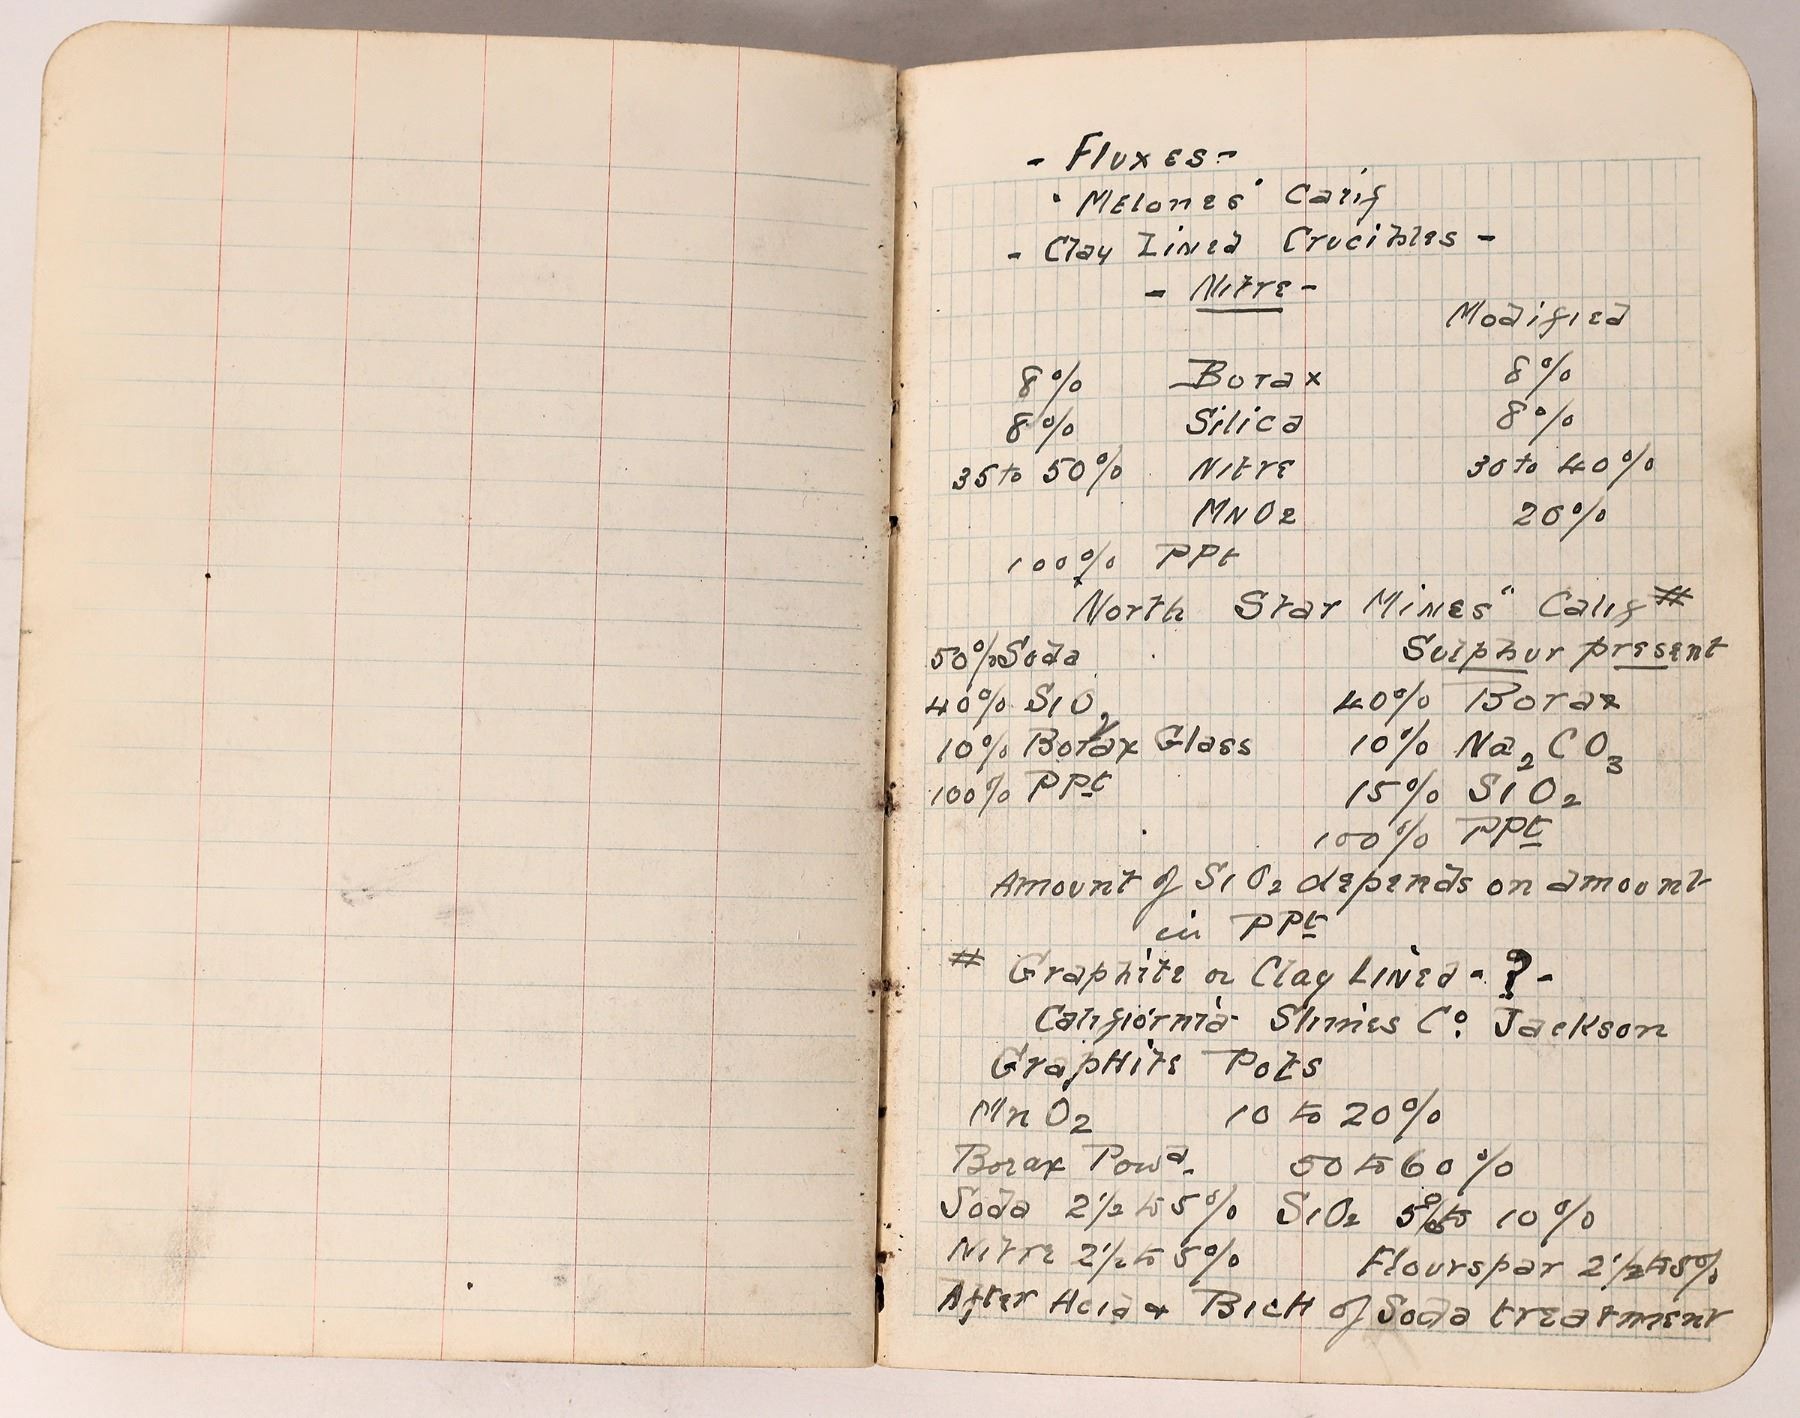 - Fluxes -
"Melones" Calif
- Clay Lined Crucibles -
- Nitre -
Modified
8% Borax 8%
8% Silica 8%
35 to 50% Nitre 30 to 40%
MnO2 20%
100% PPt
"North Star Mines" Calif #
50% Soda Sulphur present
40% SiO2 40% Borax
10% Borax Glass 10% Na2CO3
100% PPt 15% SiO2
100% PPt
Amount of SiO2 depends on amount
in PPt
# Graphite or Clay Lined - ? -
California Slimes Co. Jackson
GrapHite Pots
MnO2 10 to 20%
Borax Powd. 50 to 60%
Soda 2 1/2 to 5% SiO2 5% to 10%
Nitre 2 1/2 to 5% Flourspar 2 1/2 to 5%
After Acid & BicH of Soda treatment